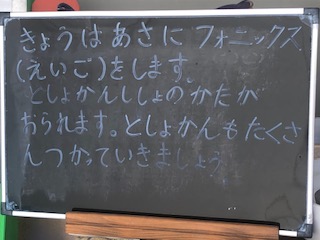 きょうはあさに フォニックス
(えいご)をします。
としょかんししょのかたが
おられます。としょかんもたくさ
んつかっていきましょう